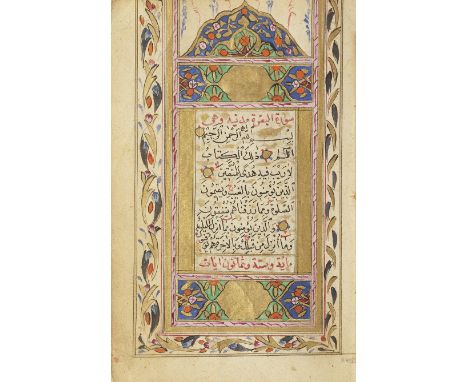 سورة البقرة مدنية وهي
بسم الله الرحمن الرحيم
الم ذلك الكتاب
لا ريب فيه هدى للمتقين
الذين يؤمنون بالغيب ويقيمون
الصلوة ومما رزقناهم ينفقون
والذين يؤمنون بما انزل اليك
وما انزل من قبلك وبالاخرة هم
ماية وستة وثمانون ايات